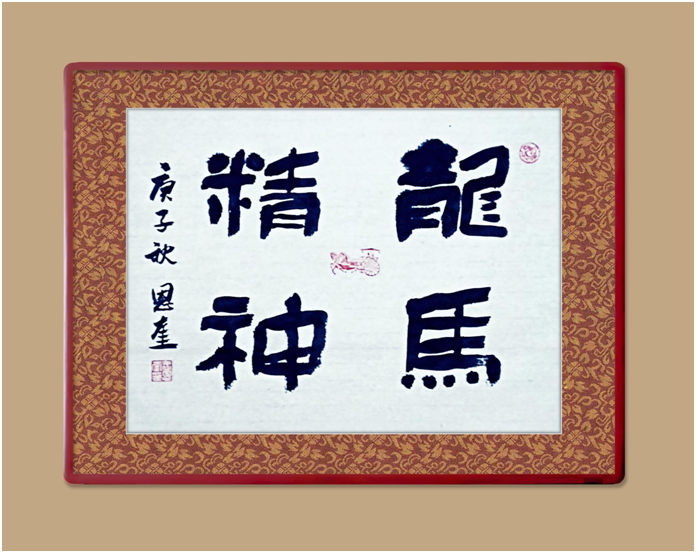 龍馬
精神
庚子秋 恩奎